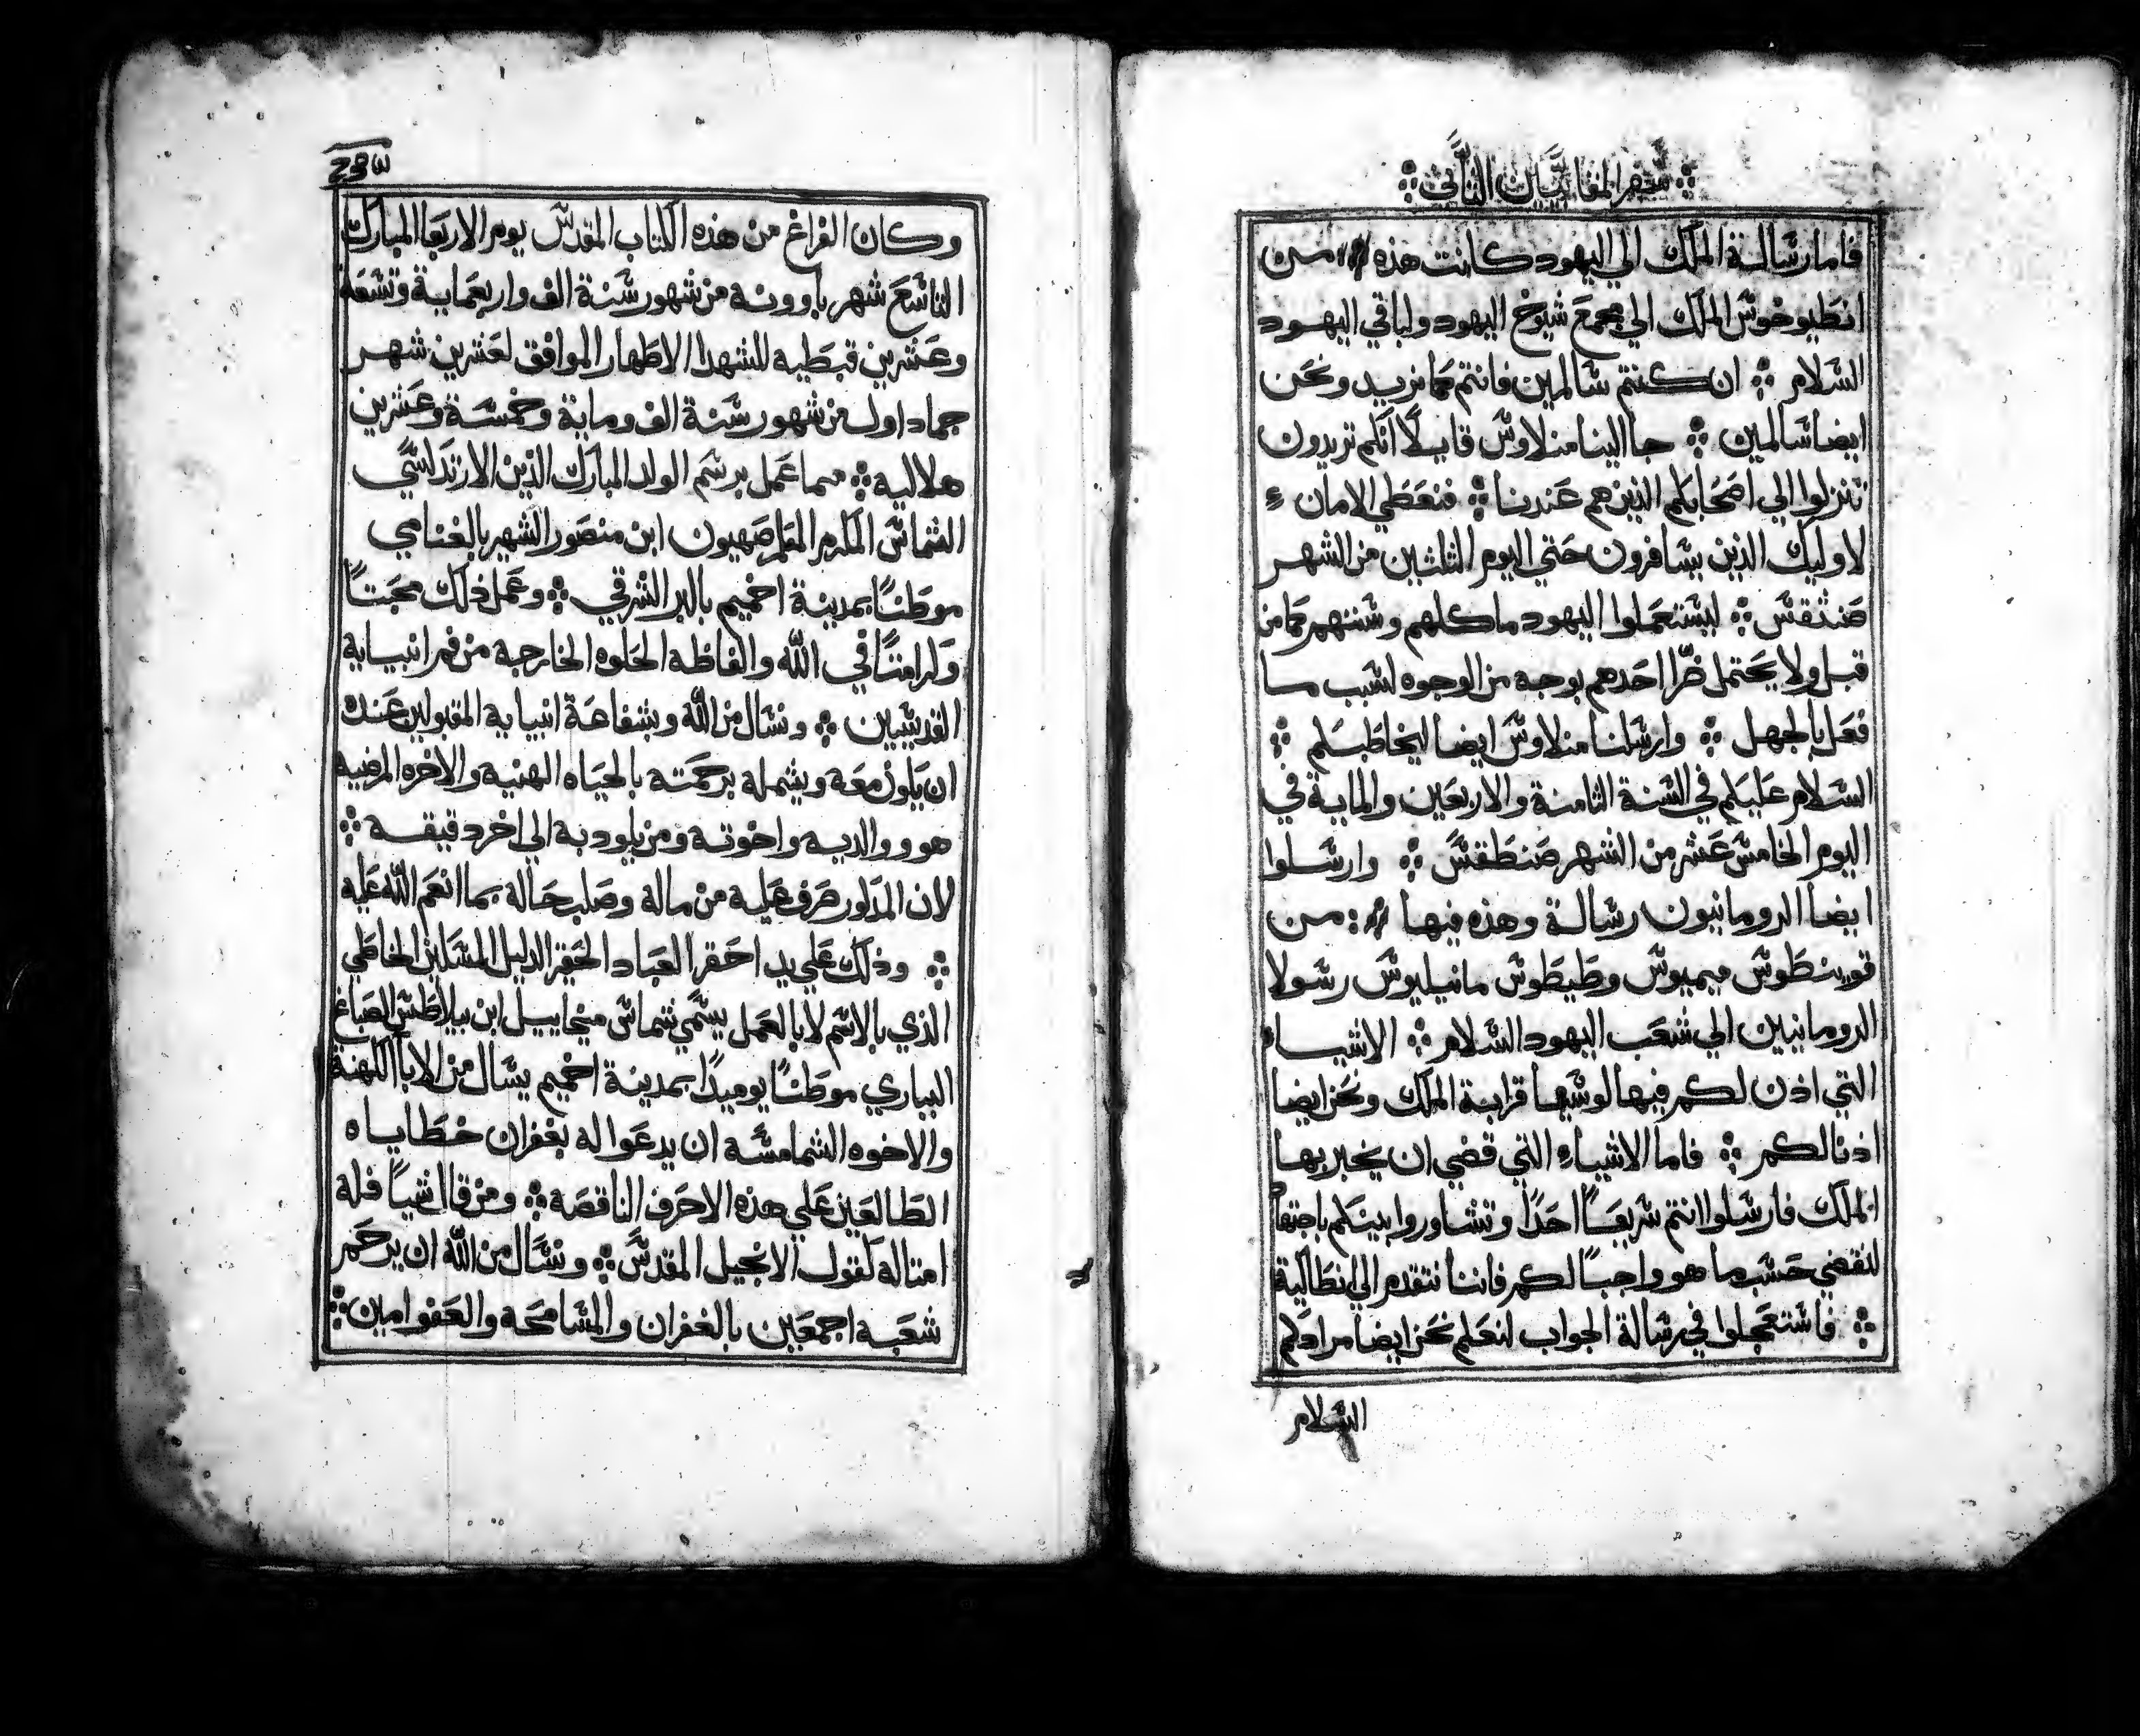 سفر المقابيين الثاني
فاما رسالة الملك الي اليهود كانت هذه من
انطيوخوس الملك الي مجمع شيوخ اليهود ولباقي اليهود
السلام ※ ان كنتم سالمين فانتم كما نريد ونحن
ايضا سالمين ※ جا الينا منلاوس قايلا انكم تريدون
تنزلوا الي اصحابكم الذين هم عندنا ※ فنعطي الامان
لاوليك الذين يسافرون حتي اليوم الثلثين من الشهر
صنثقس ※ ليستعملوا اليهود ماكلهم وسننهم كما من
قبل ولا يحتمل ضرا احدهم بوجه من الوجوه لسبب ما
فعل بالجهل ※ وارسلنا منلاوس ايضا ليخاطبكم ※
السلام عليكم في السنة الثامنة والاربعين والماية في
اليوم الخامس عشر من الشهر صنطقس ※ وارسلوا
ايضا الرومانيون رسالة وهذه فيها : من
قوينطوس ميميوس وطيطوس مانيليوس رسولا
الرومانيين الي شعب اليهود السلام ※ الاشياء
التي اذن لكم فيها لوسيا قرابة الملك ونحن ايضا
اذنا لكم ※ فاما الاشياء التي قضي ان يخبر بها
الملك فارسلوا انتم سريعا احدا وتشاوروا بينكم باجتهاد
لنقضي حسب ما هو واجبا لكم فاننا نتقدم الي انطاكية
※ فاستعجلوا في رسالة الجواب لنعلم نحن ايضا مرادكم
السلام
وكان الفراغ من هذه الكتاب المقدس يوم الاربعا المبارك
التاسع شهر باوونه من شهور سنة الف واربعماية وتسعة
وعشرين قبطيه للشهدا الاطهار الموافق لعشرين شهر
جماد اول من شهور سنة الف وماية وخمسة وعشرين
هلاليه ※ مما عمل برسم الولد المبارك الزين الارتدكسي
الشماس المكرم المعلم صهيون ابن منصور الشهير بالغنامي
موطنا بمدينة اخميم بالبر الشرقي ※ وعمل ذلك محبتا
وكرامتا في الله والفاظه الحلوه الخارجه من فم انبيايه
القديسين ※ ونسال من الله وبشفاعة انبيايه المقبولين عنده
ان يكون معه ويشمله برحمته بالحياه الهنيه والاخره المرضيه
هو ووالديه واخوته ومن يلود به الي اخر دقيقه ※
لان المدكور صرف عليه من ماله وصلب حاله بما انعم الله عليه
※ وذلك علي يد احقر العباد الحقير الدليل المسكين الخاطي
الذي بالاسم لا بالعمل يسمي شماس ميخاييل ابن بيلاطس الصباغ
البياري موطنا يوميدا بمدينة اخميم يسال من الابا الكهنه
والاخوه الشمامسه ان يدعوا له بغفران خطاياه
الطالعين علي هذه الاحرف الناقصه ※ ومن قال شيا فله
امتاله لقول الانجيل المقدس ※ ونسال من الله ان يرحم
شعبه اجمعين بالغفران والمسامحه والعفو امين ※